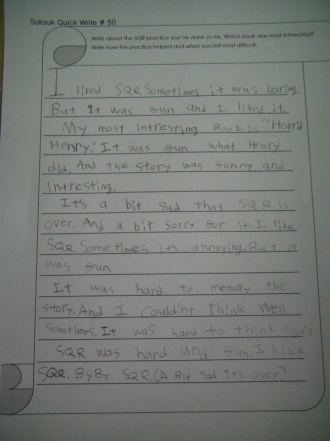 Suksuk Quick Write # 50
Write about the SQR practice you've done so far. Which book was most interesting?
Write how the practice helped and when you felt most difficult.
I liked SQR. Sometimes it was boring.
But it was sun and I liked it.
My most intresting Book is "Horrid
Henry." It was sun what Henry
did. And the story was sunny and
Intresting.
It's a bit sad that SQR is
over. And a bit sorry for it. I like
SQR. Sometimes its annoying. But it
was sun
It was hard to memory the
story. And I couldn't think well
somtimes. It was hard to think again
SQR was hard and sun. I like
SQR. ByBy SQR (A Bit sad it's over)